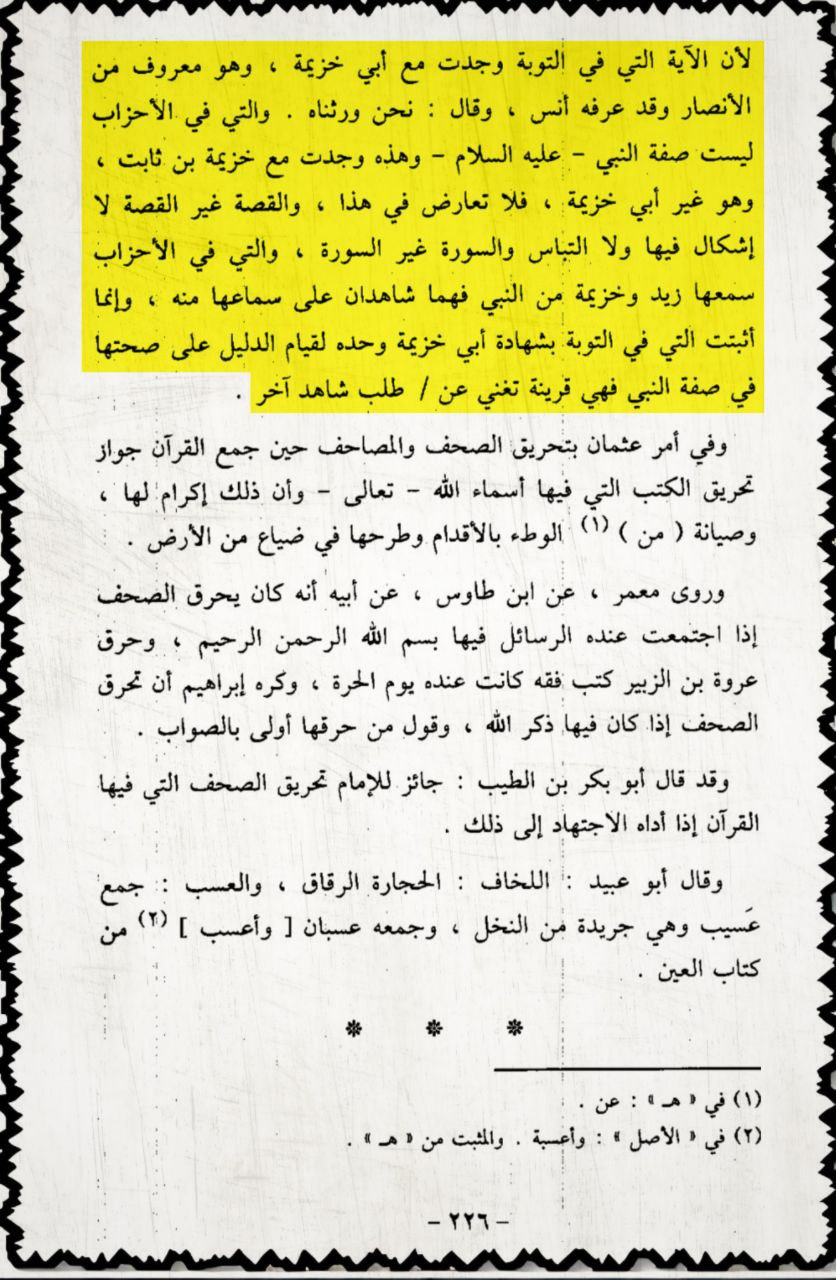 لأن الآية التي في التوبة وجدت مع أبي خزيمة ، وهو معروف من
الأنصار وقد عرفه أنس ، وقال : نحن ورثناه . والتي في الأحزاب
ليست صفة النبي - عليه السلام - وهذه وجدت مع خزيمة بن ثابت ،
وهو غير أبي خزيمة ، فلا تعارض في هذا ، والقصة غير القصة لا
إشكال فيها ولا التباس والسورة غير السورة ، والتي في الأحزاب
سمعها زيد وخزيمة من النبي فهما شاهدان على سماعها منه ، وإنما
أثبتت التي في التوبة بشهادة أبي خزيمة وحده لقيام الدليل على صحتها
في صفة النبي فهي قرينة تغني عن / طلب شاهد آخر .
وفي أمر عثمان بتحريق الصحف والمصاحف حين جمع القرآن جواز
تحريق الكتب التي فيها أسماء الله - تعالى - وأن ذلك إكرام لها ،
وصيانة ( من ) (١) الوطء بالأقدام وطرحها في ضياع من الأرض .
وروى معمر ، عن ابن طاوس ، عن أبيه أنه كان يحرق الصحف
إذا اجتمعت عنده الرسائل فيها بسم الله الرحمن الرحيم ، وحرق
عروة بن الزبير كتب فقه كانت عنده يوم الحرة ، وكره إبراهيم أن تحرق
الصحف إذا كان فيها ذكر الله ، وقول من حرقها أولى بالصواب .
وقد قال أبو بكر بن الطيب : جائز للإمام تحريق الصحف التي فيها
القرآن إذا أداه الاجتهاد إلى ذلك .
وقال أبو عبيد : اللخاف : الحجارة الرقاق ، والعسب : جمع
عَسيب وهي جريدة من النخل ، وجمعه عسبان [ وأعسب ] (٢) من
كتاب العين .
(١) في « هـ » : عن .
(٢) في « الأصل » : وأعسبة . والمثبت من « هـ » .
- ٢٢٦ -